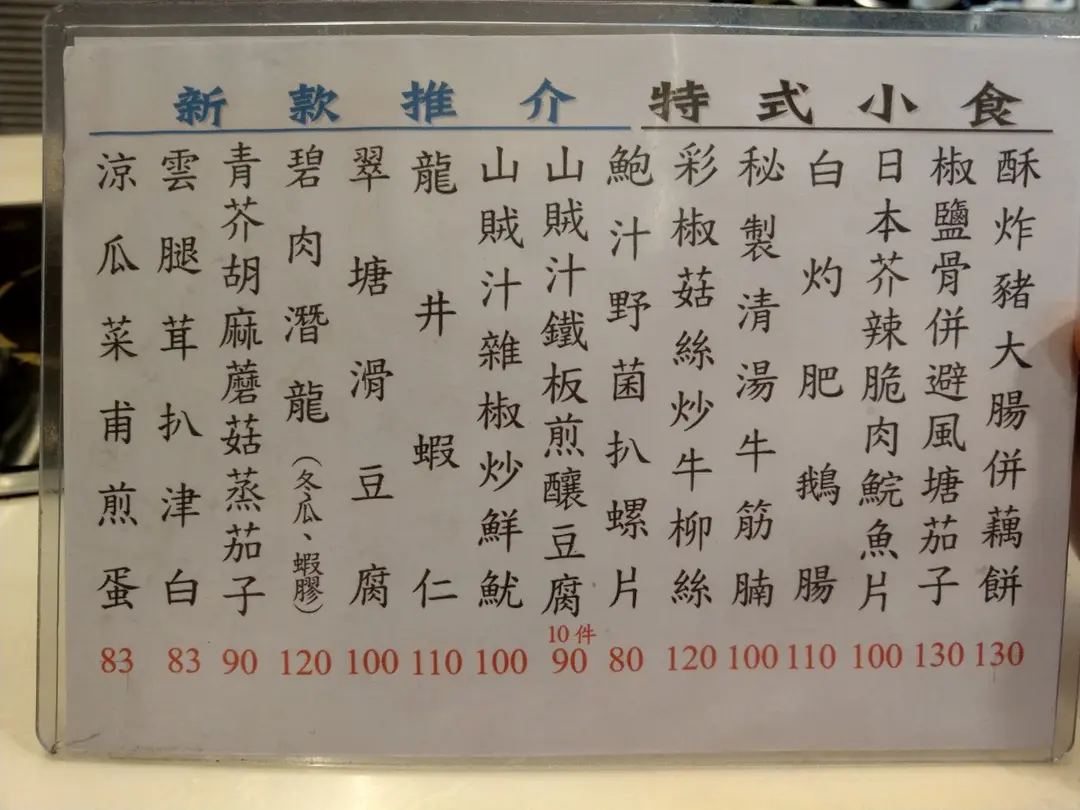 新款推介 特式小食
酥炸豬大腸併藕餅 130
椒鹽骨併避風塘茄子 130
日本芥辣脆肉鯇魚片 100
白灼肥鵝腸 110
秘製清湯牛筋腩 100
彩椒菇絲炒牛柳絲 120
鮑汁野菌扒螺片 80
山賊汁鐵板煎釀豆腐 10件 90
山賊汁雜椒炒鮮魷 100
龍井蝦仁 110
翠塘滑豆腐 100
碧肉潛龍（冬瓜、蝦膠） 120
青芥胡麻蘑菇蒸茄子 90
雲腿茸扒津白 83
涼瓜菜甫煎蛋 83